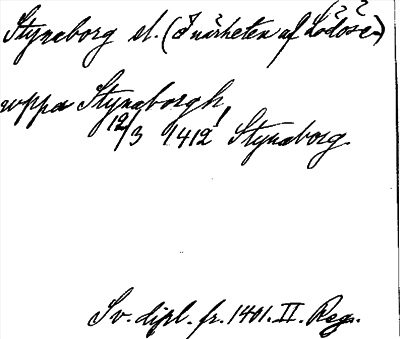 Stynaborg sl. (I närheten af Lödöse?)
uppa Stynaborgh,
12/3 1412 Stynaborg
Sv. dipl. fr. 1401. II. Reg.